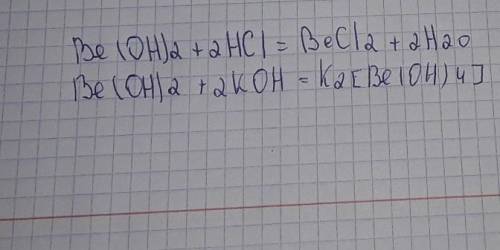 Be(OH)2 + 2HCl = BeCl2 + 2H2O
Be(OH)2 + 2KOH = K2[Be(OH)4]